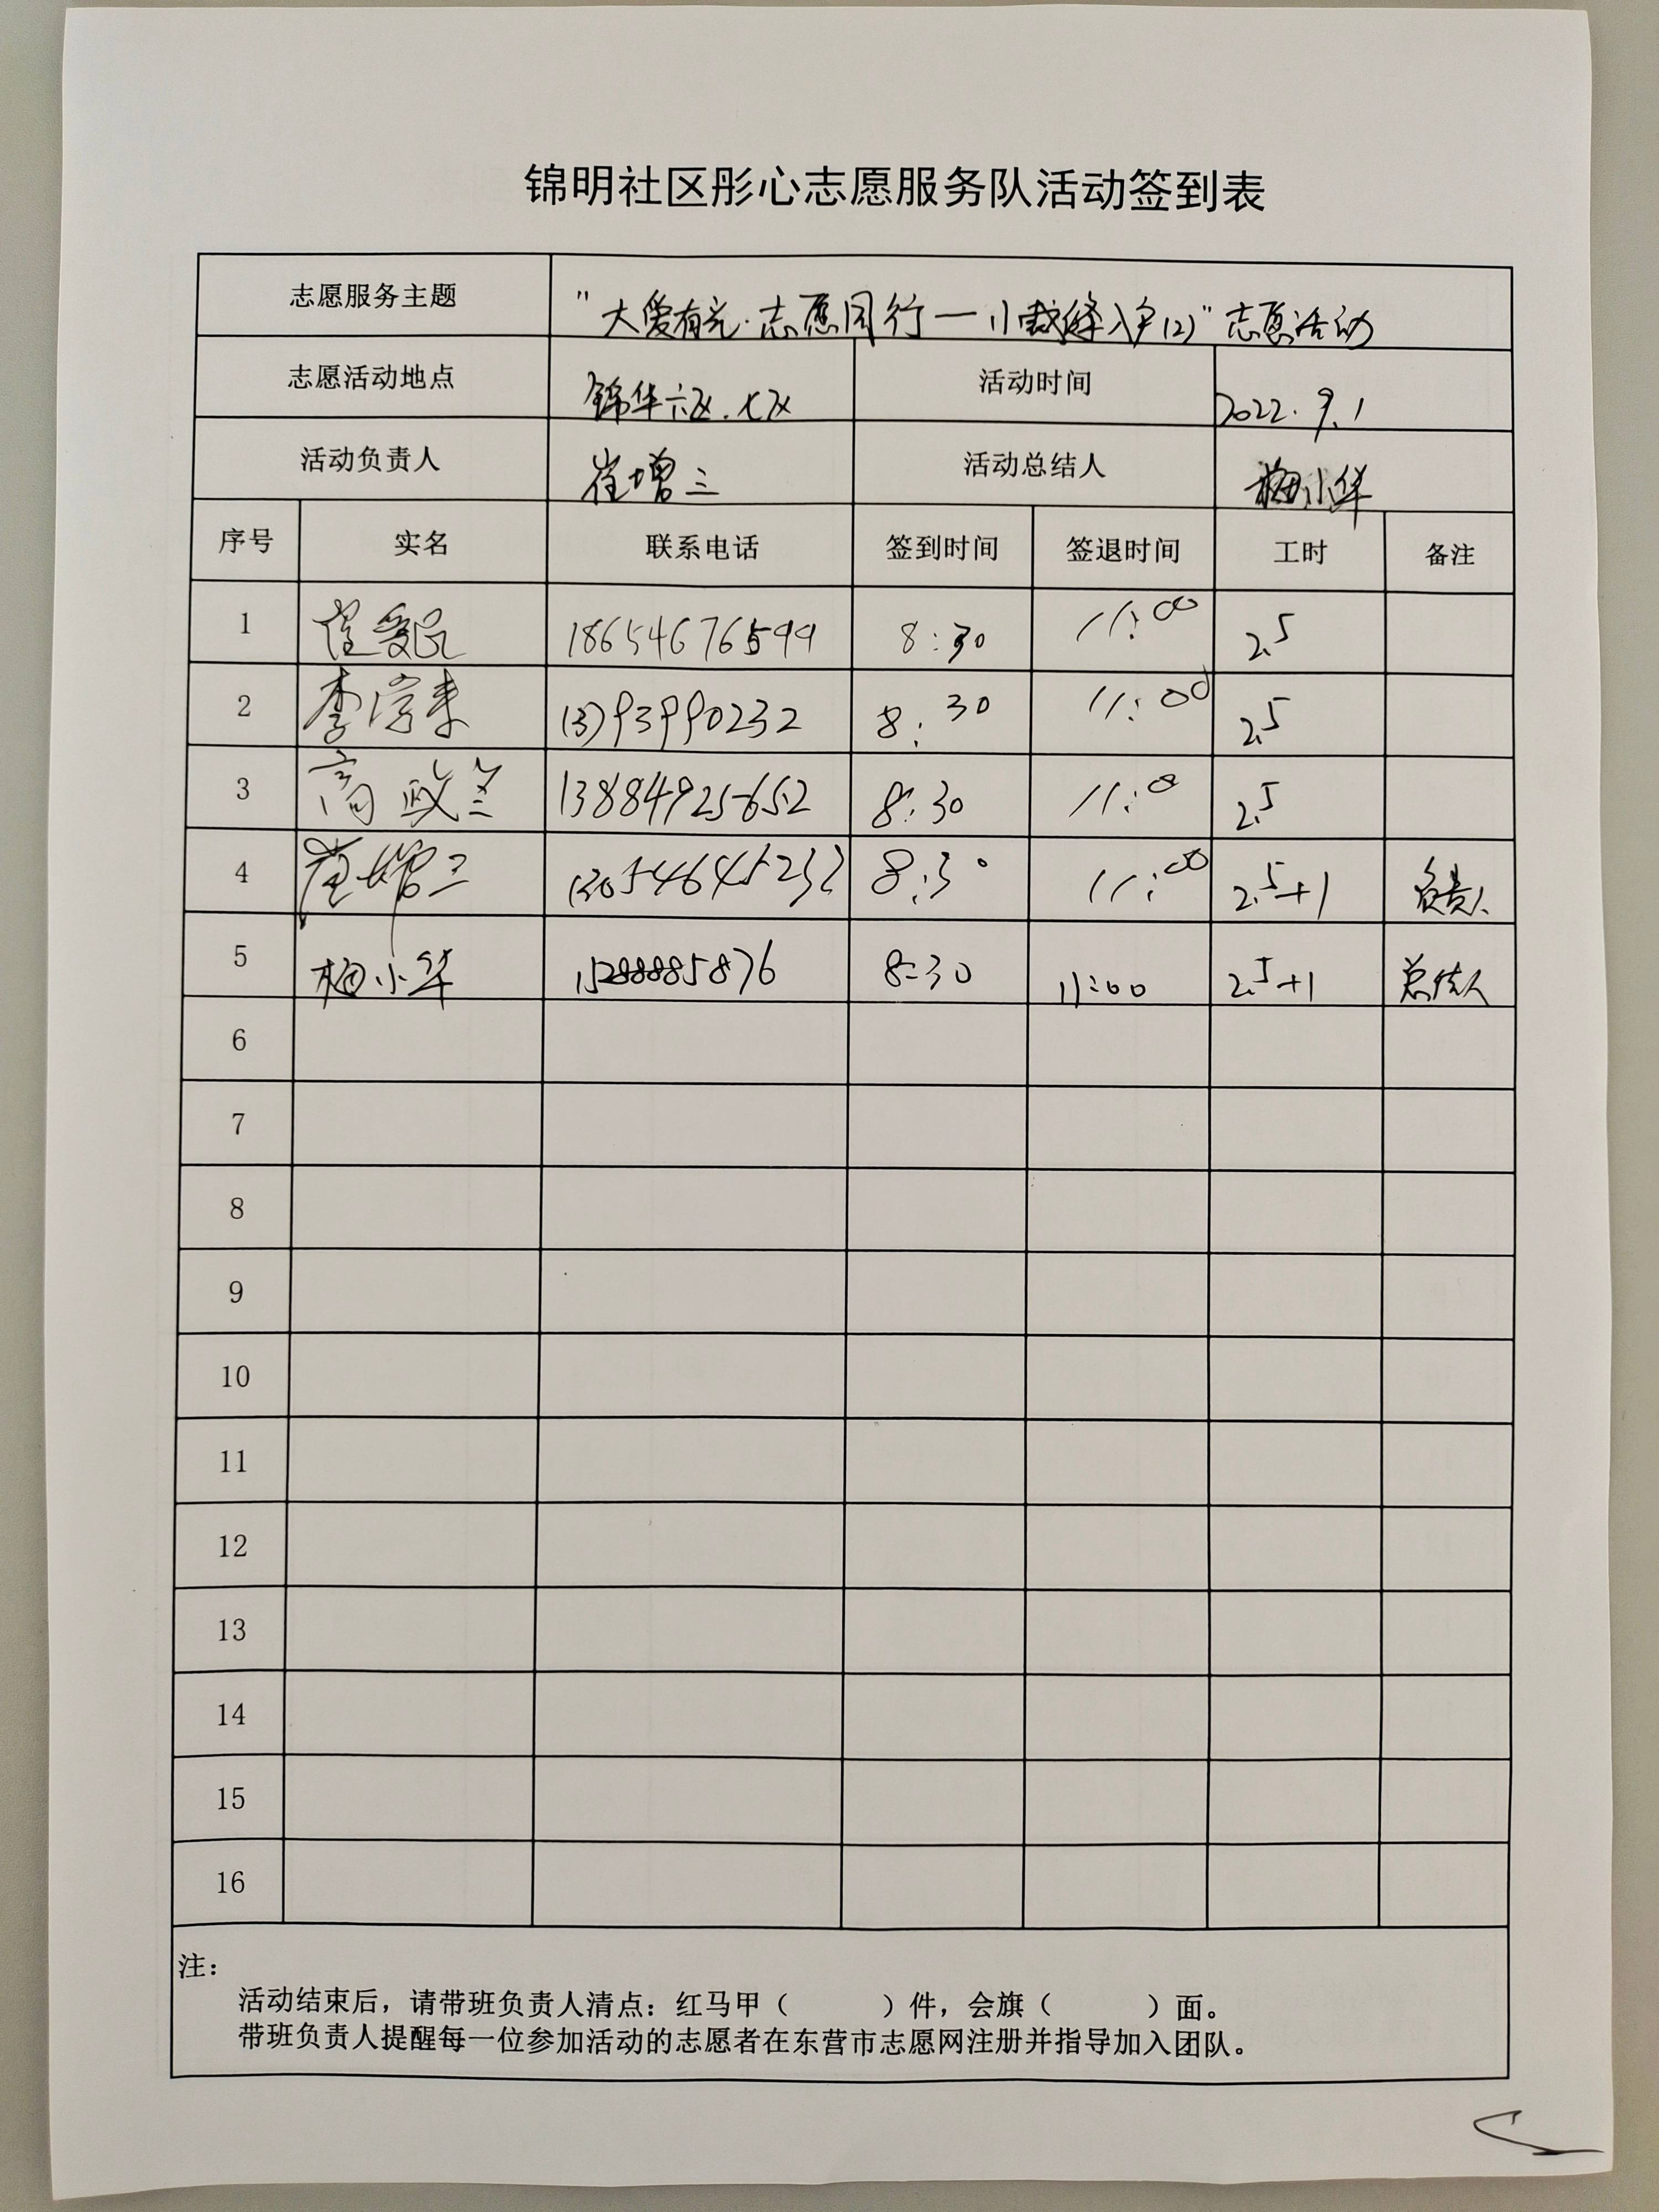 锦明社区彤心志愿服务队活动签到表
志愿服务主题 "大爱有光·志愿同行一小裁缝入户(2)"志愿活动
志愿活动地点 锦华六区.七区 活动时间 2022.9.1
活动负责人 崔增三 活动总结人 梅小华
序号 实名 联系电话 签到时间 签退时间 工时 备注
1 18654676599 8:30 11:00 2.5
2 李 13793990232 8:30 11:00 2.5
3 高政兰 13884925652 8:30 11:0 2.5
4 崔增三 13054645232 8:30 11:00 2.5+1 负责人
5 梅小华 15288885876 8:30 11:00 2.5+1 总结人
6
7
8
9
10
11
12
13
14
15
16
注：
活动结束后，请带班负责人清点：红马甲（ ）件，会旗（ ）面。
带班负责人提醒每一位参加活动的志愿者在东营市志愿网注册并指导加入团队。